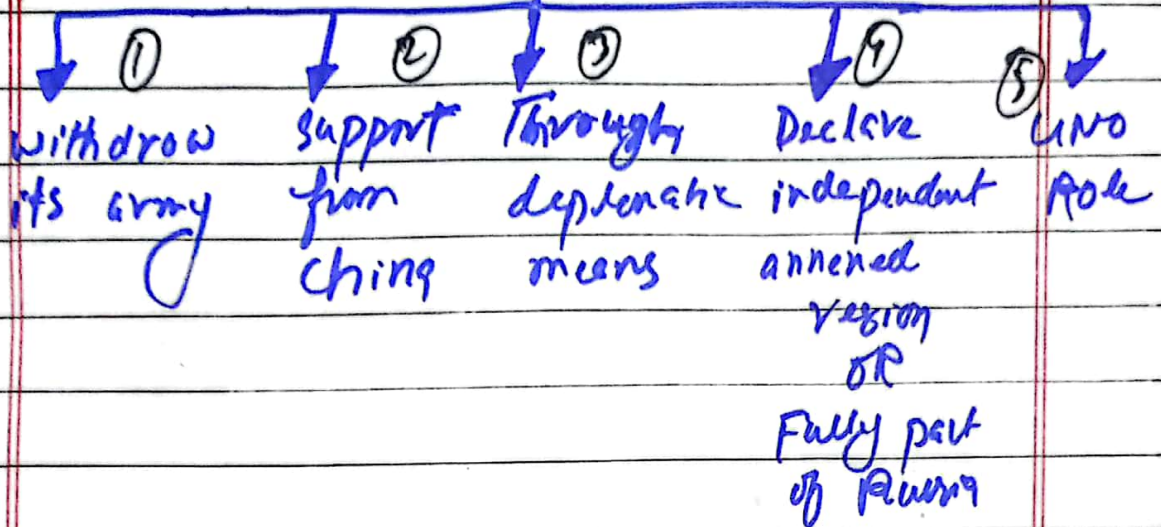 ①
withdrow
its army
②
support
from
China
③
Through
deplematic
means
④
Declare
independent
annexed
region
OR
Fully part
of Russia
⑤
UNO
Role